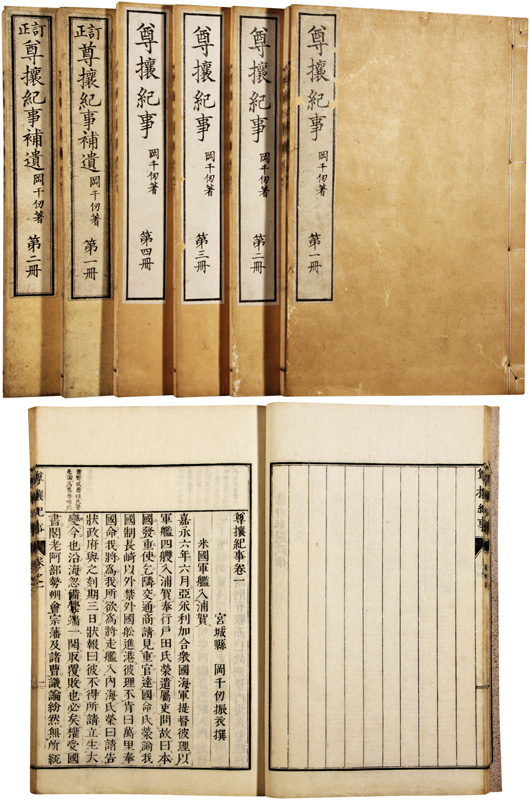 尊攘紀事 岡千仞著 第一冊
尊攘紀事 岡千仞著 第二冊
尊攘紀事 岡千仞著 第三冊
尊攘紀事 岡千仞著 第四冊
訂正 尊攘紀事補遺 岡千仞著 第一冊
訂正 尊攘紀事補遺 岡千仞著 第二冊
尊攘紀事
尊攘紀事卷一
宮城縣 岡千仞振衣撰
米國軍艦入浦賀
嘉永六年六月亞米利加合衆國海軍提督彼理以
軍艦四艘入浦賀奉行戶田氏榮遣屬吏問故曰本
國發重使乞隣交通商請見重官達國命氏榮諭我
國制長崎以外禁外國舩進港彼理不肯曰萬里奉
國命我將爲我所欲爲將走艦入內海氏榮曰請告
狀政府與之刻期三日狀報曰彼不得所請立生大
變今也沿海忽備釁端一開取覆敗也必矣權受國
書閣老阿部勢州會宗藩及諸曹議論紛然無所統
尊攘紀事 卷之一